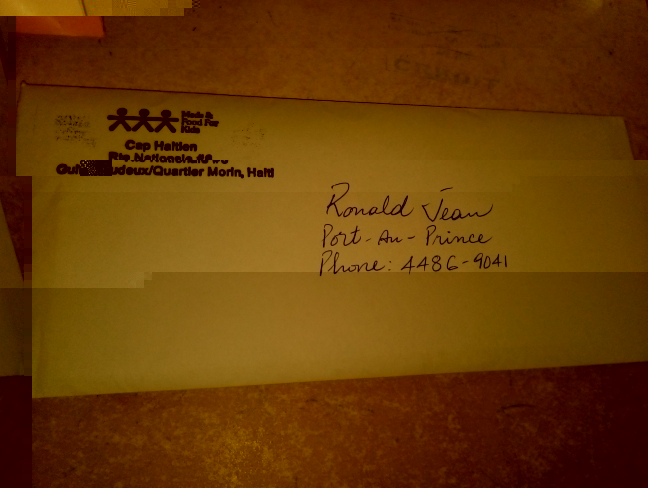 Meds &
Food For
Kids
Cap Haitien
Rte Nationale
/Quartier Morin, Haiti
Ronald Jean
Port-Au-Prince
Phone: 4486-9041